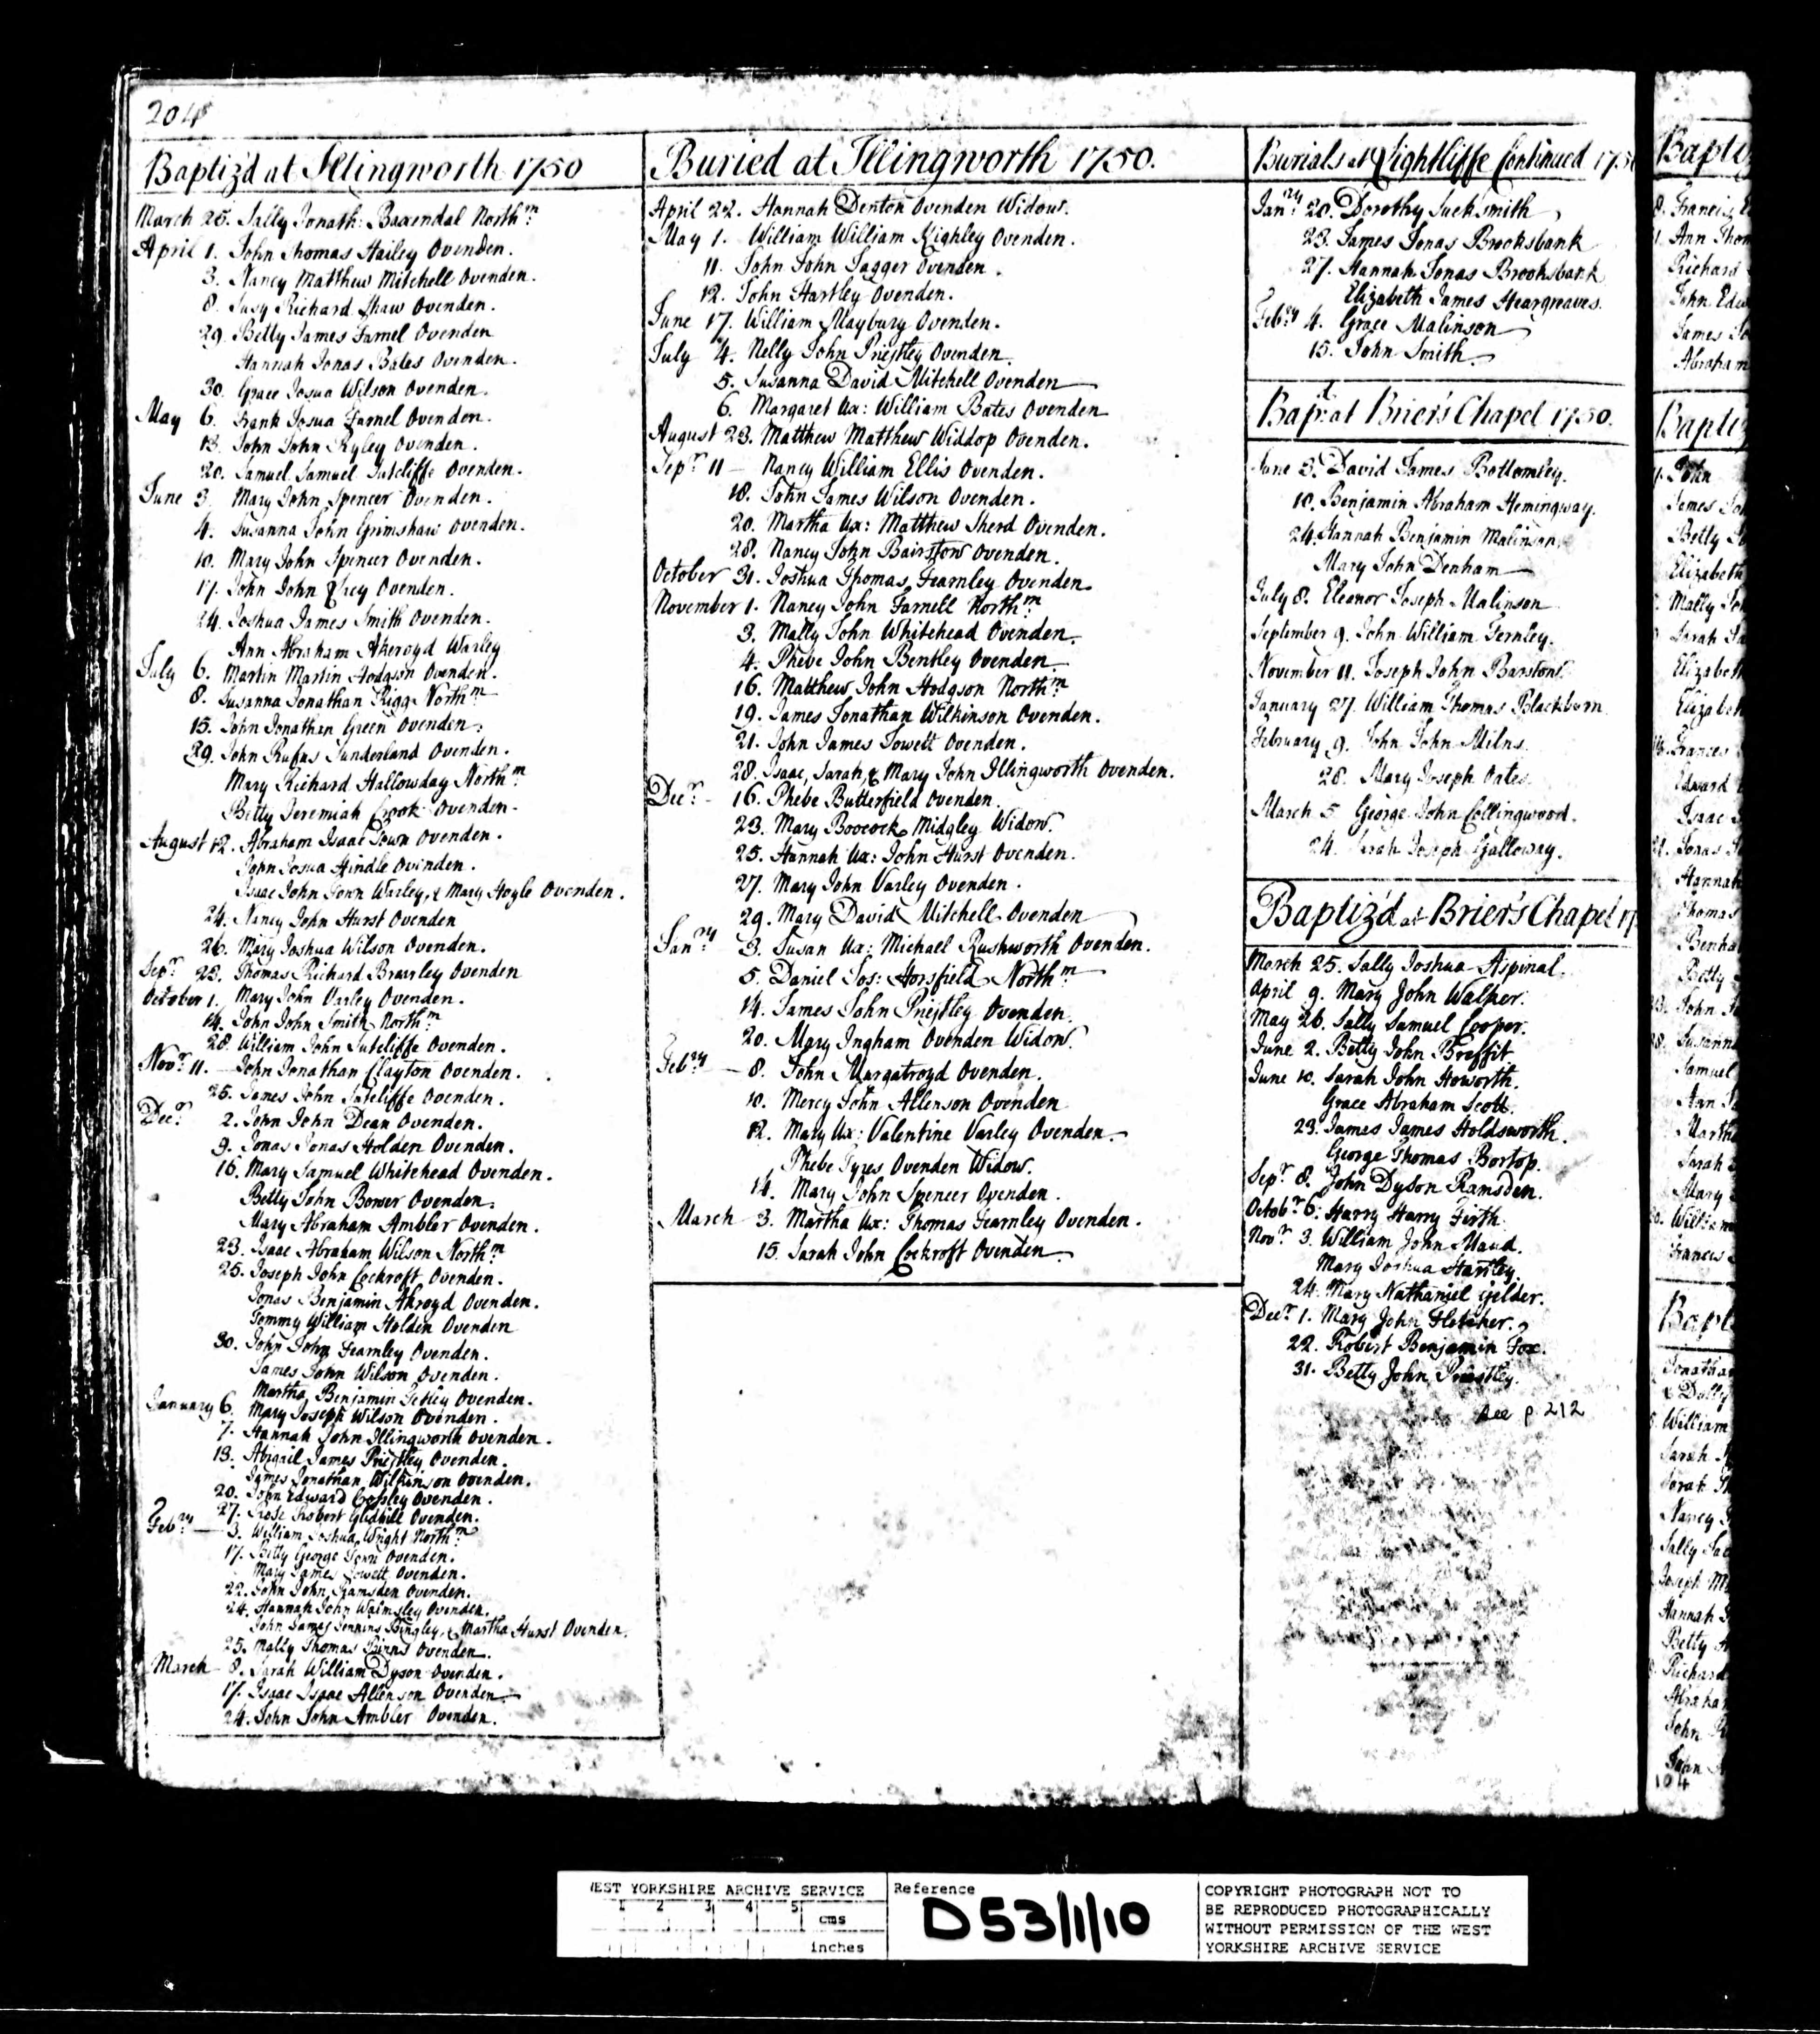 204
Baptiz'd at Illingworth 1750
March 25. Sally Jonath: Baxendal North:m
April 1. John Thomas Hailey Ovenden.
3. Nancy Matthew Mitchell Ovenden.
8. Susy Richard Shaw Ovenden.
29. Betty James Farnel Ovenden
Hannah Jonas Bates Ovenden.
30. Grace Josua Wilson Ovenden.
May 6. Josua Farnel Ovenden.
13. John John Ryley Ovenden.
20. Samuel Samuel Sutcliffe Ovenden.
June 3. Mary John Spencer Ovenden.
4. Susanna John Grimshaw Ovenden.
10. Mary John Spencer Ovenden.
17. John John Ovenden.
24. Joshua James Smith Ovenden.
Ann Abraham Akeroyd Warley
July 6. Martin Martin Hodgson Ovenden.
8. Susanna Jonathan Rigg North:m
15. John Jonathan Green Ovenden.
29. John Rufus Sunderland Ovenden.
Mary Richard Hallowday North:m
Betty Jeremiah Crook Ovenden.
August 12. Abraham Isaac Town Ovenden.
John Josua Hindle Ovenden.
Isaac John Warley, & Mary Hoyle Ovenden.
24. Nancy John Hurst Ovenden
26. Mary Joshua Wilson Ovenden.
Sep:r 23. Thomas Richard Ovenden
October 1. Mary John Varley Ovenden.
14. John John Smith North:m
28. William John Sutcliffe Ovenden.
Nov:r 11. John Jonathan Clayton Ovenden.
25. James John Sutcliffe Ovenden.
Dec:r 2. John John Dean Ovenden.
9. Jonas Jonas Holden Ovenden.
16. Mary Samuel Whitehead Ovenden.
Betty John Bower Ovenden.
Mary Abraham Ambler Ovenden.
23. Isaac Abraham Wilson North:m
25. Joseph John Cockroft Ovenden.
Jonas Benjamin Akroyd Ovenden.
Tommy William Holden Ovenden
30. John John Fearnley Ovenden.
James John Wilson Ovenden.
Martha Benjamin Ovenden.
January 6. Mary Joseph Wilson Ovenden.
7. Hannah John Illingworth Ovenden.
13. Abigail James Priestley Ovenden.
James Jonathan Wilkinson Ovenden.
20. John Edward Ovenden.
27. Rose Robert Gledhill Ovenden.
Feb:ry 3. William Joshua Wright North:m
17. Betty George Ovenden.
Mary James Jowett Ovenden.
22. John John Ramsden Ovenden.
24. Hannah John Walmsley Ovenden.
John James Jennins Bingley, & Martha Hurst Ovenden.
25. Mally Thomas Binns Ovenden.
March 8. Sarah William Dyson Ovenden.
17. Isaac Isaac Allenson Ovenden
24. John John Ambler Ovenden.
Buried at Illingworth 1750.
April 22. Hannah Denton Ovenden Widow.
May 1. William William Kighley Ovenden.
11. John John Jagger Ovenden.
12. John Hartley Ovenden.
June 17. William Maybury Ovenden.
July 4. Nelly John Priestley Ovenden.
5. Susanna David Mitchell Ovenden
6. Margaret Ux: William Bates Ovenden
August 23. Matthew Matthew Widdop Ovenden.
Sep:r 11 Nancy William Ellis Ovenden.
18. John James Wilson Ovenden.
20. Martha Ux: Matthew Sherd Ovenden.
28. Nancy John Bairstow Ovenden.
October 31. Joshua Thomas Fearnley Ovenden
November 1. Nancy John Farnell North:m
3. Mally John Whitehead Ovenden.
4. Phebe John Bentley Ovenden.
16. Matthew John Hodgson North:m
19. James Jonathan Wilkinson Ovenden.
21. John James Jowett Ovenden.
28. Isaac, Sarah, & Mary John Illingworth Ovenden.
Dec:r 16. Phebe Butterfield Ovenden.
23. Mary Boocock Midgley Widow.
25. Hannah Ux: John Hurst Ovenden.
27. Mary John Varley Ovenden.
29. Mary David Mitchell Ovenden
Jan:ry 3. Susan Ux: Michael Rushworth Ovenden.
5. Daniel Jos: Horsfield North:m
14. James John Priestley Ovenden.
20. Mary Ingham Ovenden Widow.
Feb:ry 8. John Murgatroyd Ovenden.
10. Mercy John Allenson Ovenden
12. Mary Ux: Valentine Varley Ovenden.
Phebe Tyres Ovenden Widow.
14. Mary John Spencer Ovenden.
March 3. Martha Ux: Thomas Fearnley Ovenden.
15. Sarah John Cockroft Ovenden.
Burials at Lightliffe Continued 175
Jan:ry 20. Dorothy Sucksmith
23. James Jonas Brooksbank
27. Hannah Jonas Brooksbank
Elizabeth James Heargreaves.
Feb:ry 4. Grace Malinson
15. John Smith
Bap:t at Brier's Chapel 1750.
June 3. David James Bottomley.
10. Benjamin Abraham Hemingway.
24. Hannah Benjamin Malinson.
Mary John Denham
July 8. Eleonor Joseph Malinson
September 9. John William Fernley.
November 11. Joseph John Barstow.
January 27. William Thomas Blackburn
February 9. John John Milns.
28. Mary Joseph Oates.
March 5. George John Collingwood.
24. Sarah Joseph Galloway.
Baptiz'd at Brier's Chapel 17
March 25. Sally Joshua Aspinal.
April 9. Mary John Walker.
May 26. Sally Samuel Cooper.
June 2. Betty John Breffit
June 10. Sarah John Howorth.
Grace Abraham Scott.
23. James James Holdsworth.
George Thomas Bortop.
Sep:r 8. John Dyson Ramsden.
Octob:r 6. Harry Harry Firth.
Nov:r 3. William John Maud.
Mary Joshua Hartley
24. Mary Nathaniel Gelder.
Dec:r 1. Mary John Fletcher.
22. Robert Benjamin Fox.
31. Betty John Priestley.
see p 212
104
WEST YORKSHIRE ARCHIVE SERVICE
1 2 3 4 5
cms
inches
Reference
D53/1/10
COPYRIGHT PHOTOGRAPH NOT TO
BE REPRODUCED PHOTOGRAPHICALLY
WITHOUT PERMISSION OF THE WEST
YORKSHIRE ARCHIVE SERVICE